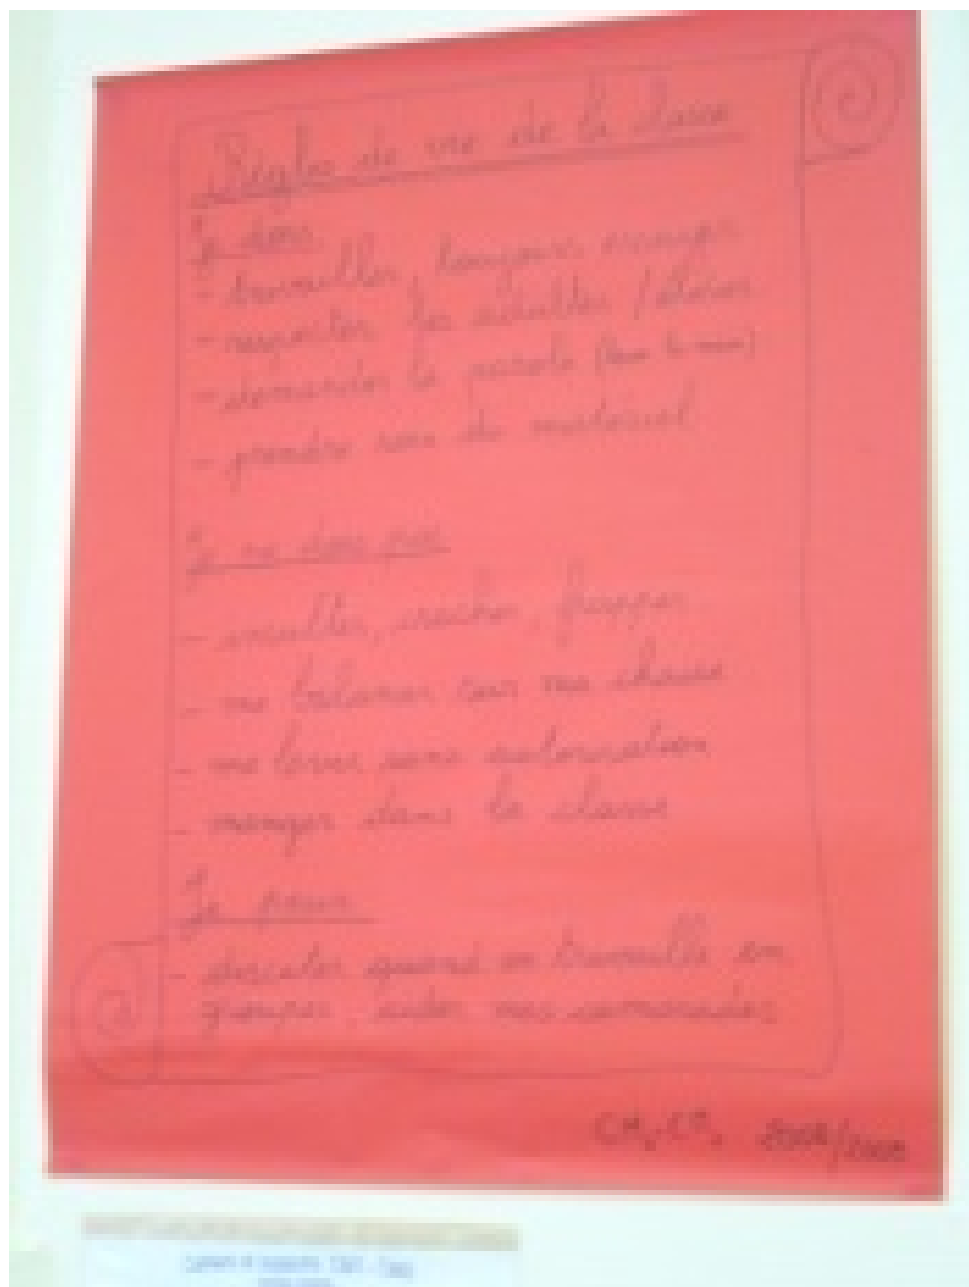 Règles de vie de la classe
Je dois
- travailler, toujours
- respecter les adultes / élèves
- demander la parole (lever la main)
- prendre soin du matériel
Je ne dois pas
- insulter, cracher, frapper
- me balancer sur ma chaise
- me lever sans autorisation
- manger dans la classe
Je peux
- discuter quand on travaille en
groupes, aider mes camarades
2008/2009